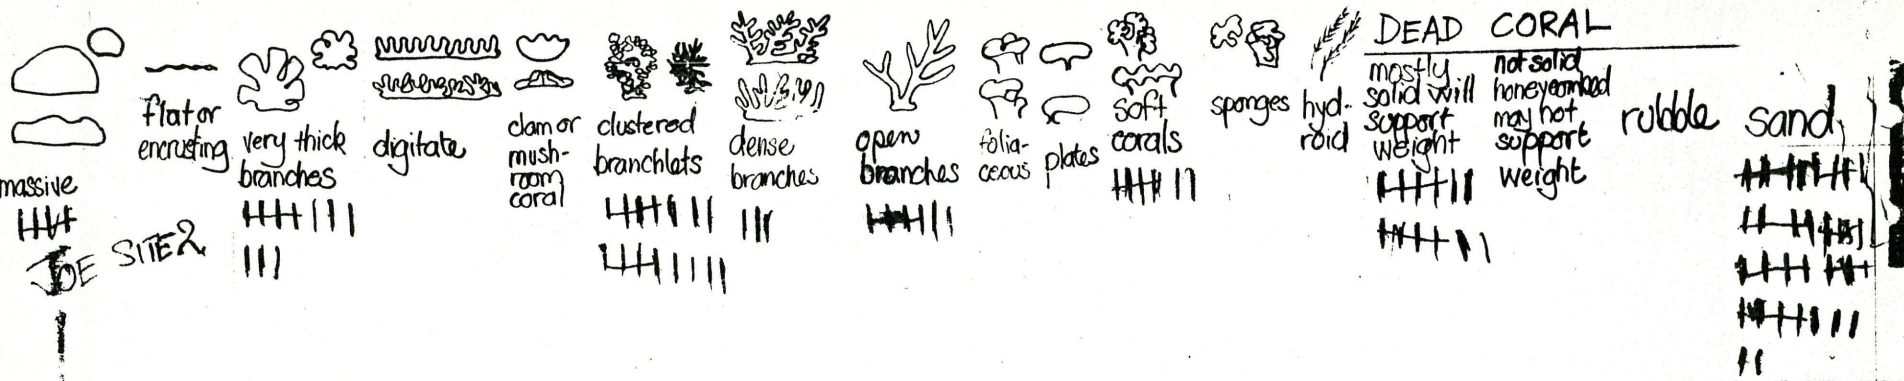 DEAD CORAL
massive
flat or
encrusting
very thick
branches
digitate
clam or
mush-
room
coral
clustered
branchlets
dense
branches
open
branches
folia-
ceous
plates
soft
corals
sponges
hyd-
roid
mostly
solid will
support
weight
not solid
honeycombed
may not
support
weight
rubble
sand
JOE SITE 2